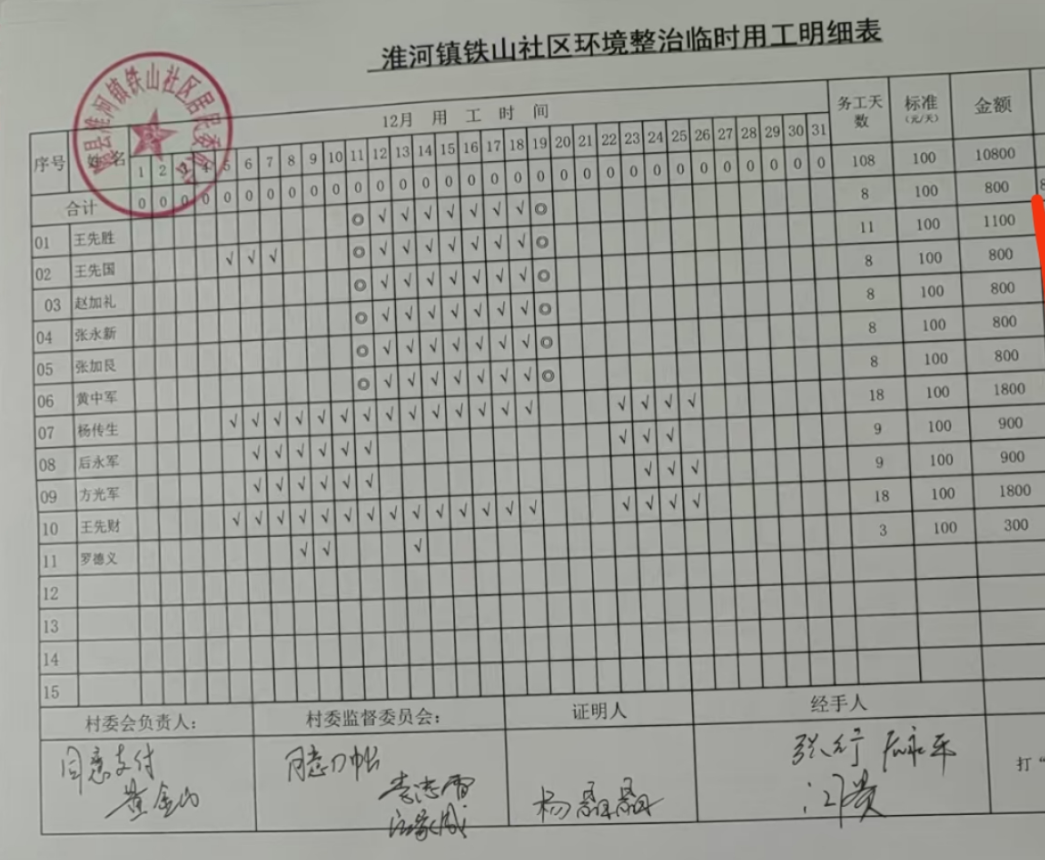 淮河镇铁山社区环境整治临时用工明细表
序号 姓名 12月 用 工 时 间 务工天数 标准(元/天) 金额
1 2 3 4 5 6 7 8 9 10 11 12 13 14 15 16 17 18 19 20 21 22 23 24 25 26 27 28 29 30 31
合计 0 0 0 0 0 0 0 0 0 0 0 0 0 0 0 0 0 0 0 0 0 0 0 0 0 0 0 0 0 0 0 108 100 10800
01 王先胜 ◎ √ √ √ √ √ √ √ ◎ 8 100 800
02 王先国 √ √ √ ◎ √ √ √ √ √ √ √ ◎ 11 100 1100
03 赵加礼 ◎ √ √ √ √ √ √ √ ◎ 8 100 800
04 张永新 ◎ √ √ √ √ √ √ √ ◎ 8 100 800
05 张加艮 ◎ √ √ √ √ √ √ √ ◎ 8 100 800
06 黄中军 ◎ √ √ √ √ √ √ √ ◎ 8 100 800
07 杨传生 √ √ √ √ √ √ √ √ √ √ √ √ √ √ √ √ √ √ 18 100 1800
08 后永军 √ √ √ √ √ √ √ √ √ 9 100 900
09 方光军 √ √ √ √ √ √ √ √ √ 9 100 900
10 王先财 √ √ √ √ √ √ √ √ √ √ √ √ √ √ √ √ √ √ 18 100 1800
11 罗德义 √ √ √ 3 100 300
12
13
14
15
村委会负责人: 村委监督委员会: 证明人 经手人
同意支付
黄金山
同意入帐
杨磊磊
打“